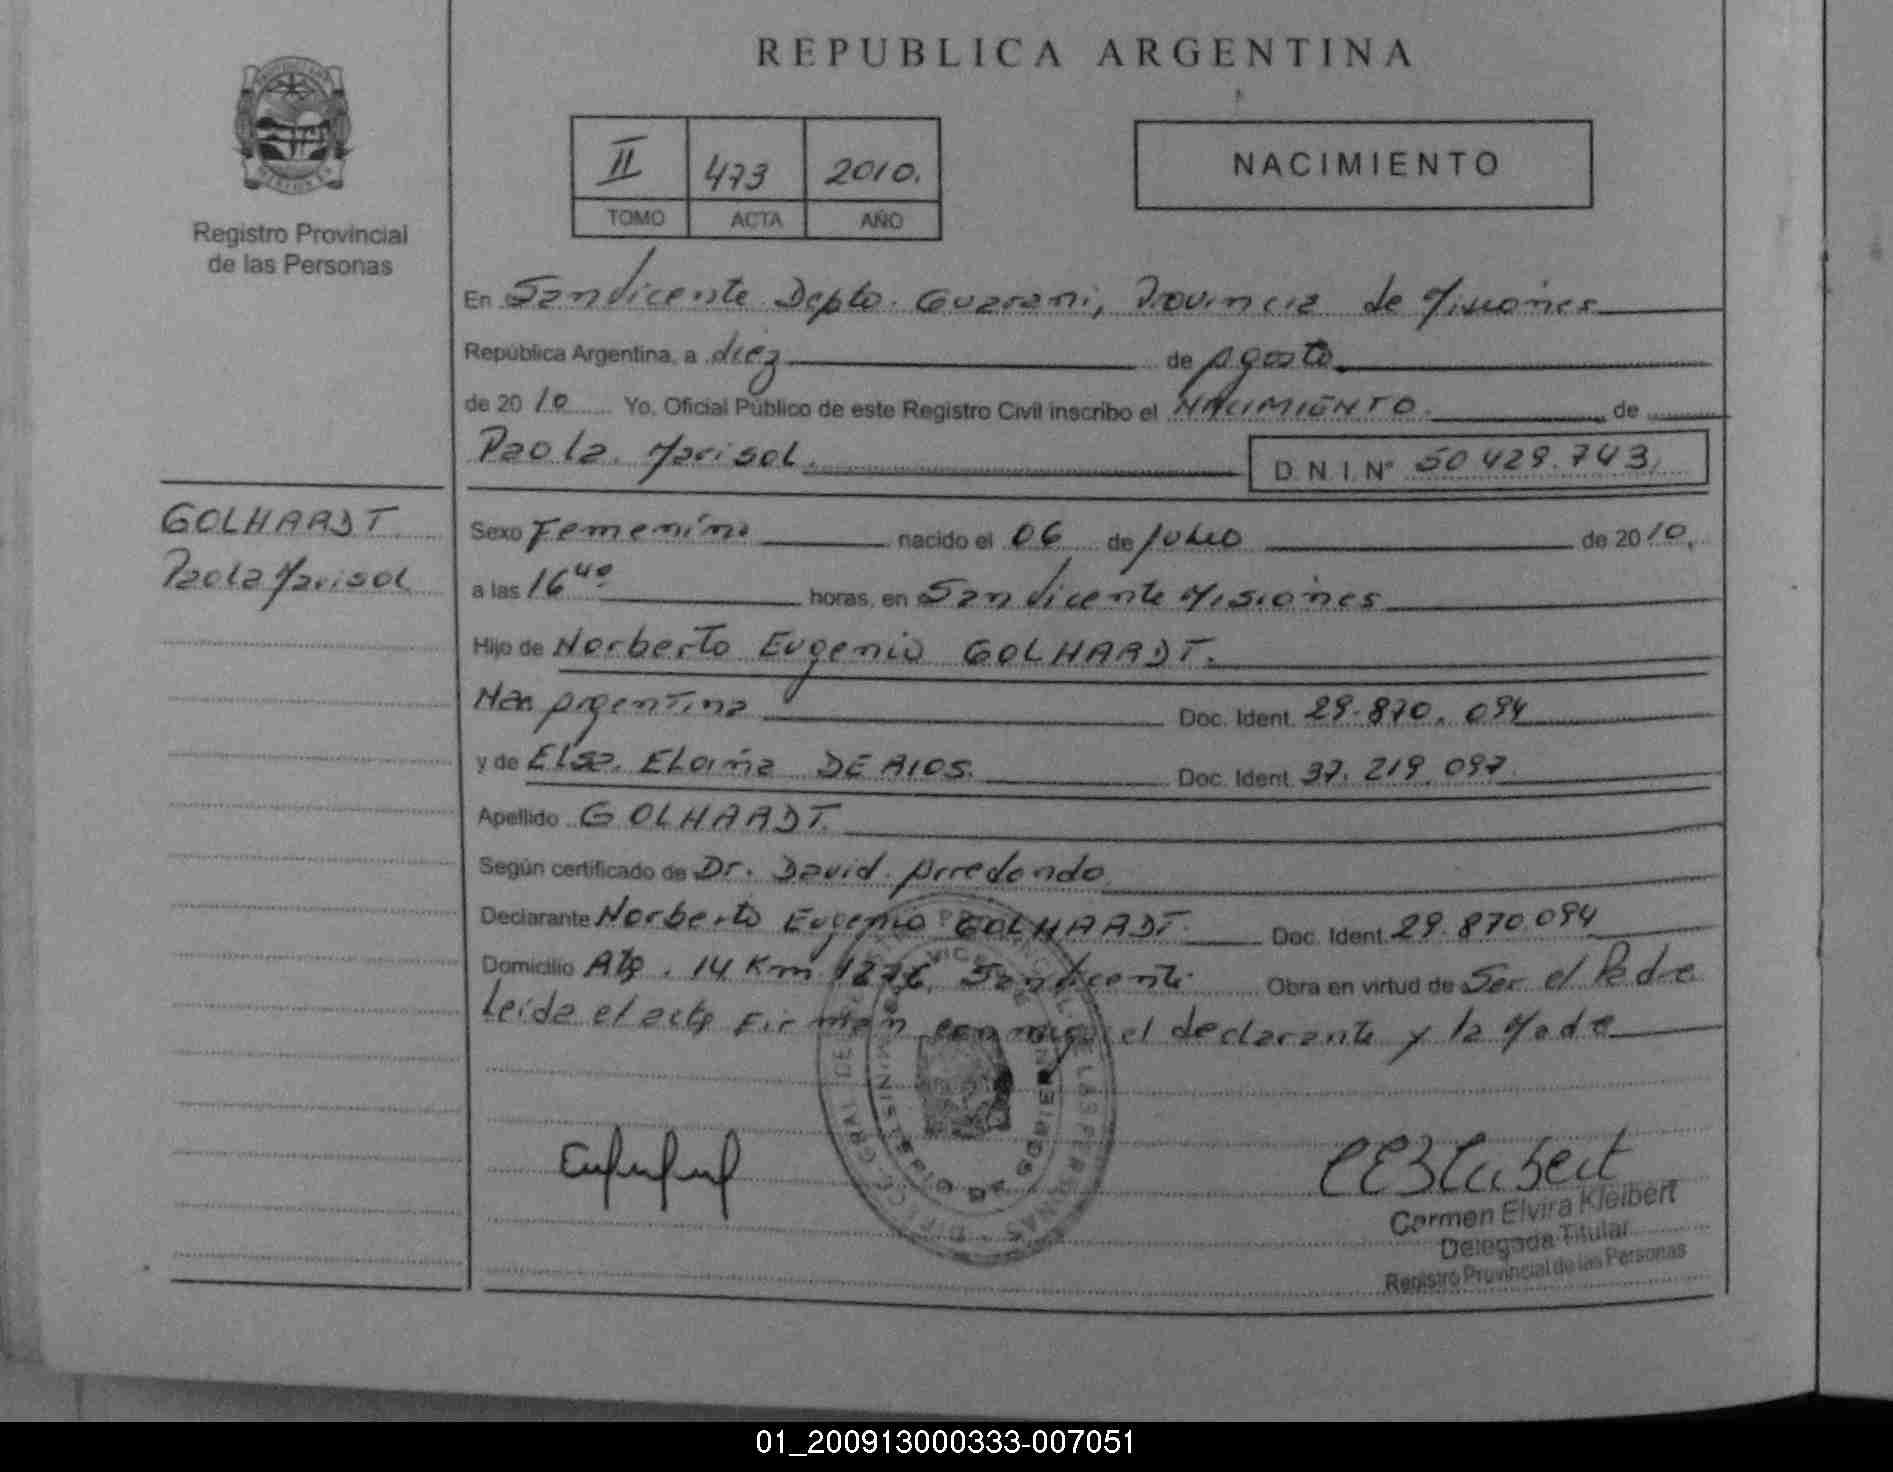 REPUBLICA ARGENTINA
Registro Provincial
de las Personas
II 473 2010.
TOMO ACTA AÑO
NACIMIENTO
En San Vicente Depto. Guarani, Provincia de Misiones
República Argentina, a diez de Agosto
de 2010 Yo, Oficial Público de este Registro Civil inscribo el NACIMIENTO. de
Paola Marisol. D.N.I. Nº 50 429.743
GOLHARDT
Paola Marisol
Sexo Femenino nacido el 06 de Julio de 2010.
a las 16 40 horas, en San Vicente Misiones
Hijo de Norberto Eugenio GOLHARDT.
Nac Argentina Doc. Ident. 29.870.094
y de Elsa DE RIOS. Doc. Ident. 37.219.097
Apellido GOLHARDT.
Según certificado de Dr. David Arredondo
Declarante Norberto Eugenio GOLHARDT. Doc. Ident. 29.870.094
Domicilio 14 Km San Vicente Obra en virtud de Ser el Padre
Leida el acta Firman conmigo el declarante y la Madre
Carmen Elvira Kleibert
Delegada Titular
Registro Provincial de las Personas
01_200913000333-007051